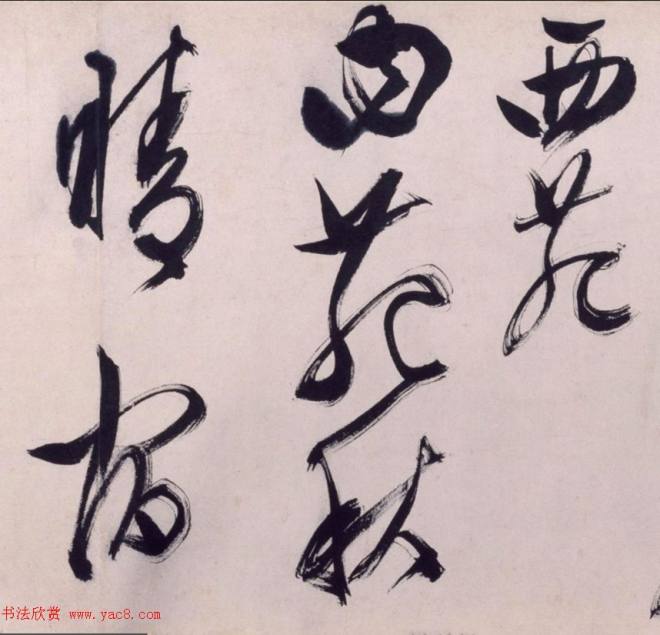 西苑
内苑秋
晴宿
书法欣赏 www.yac8.com